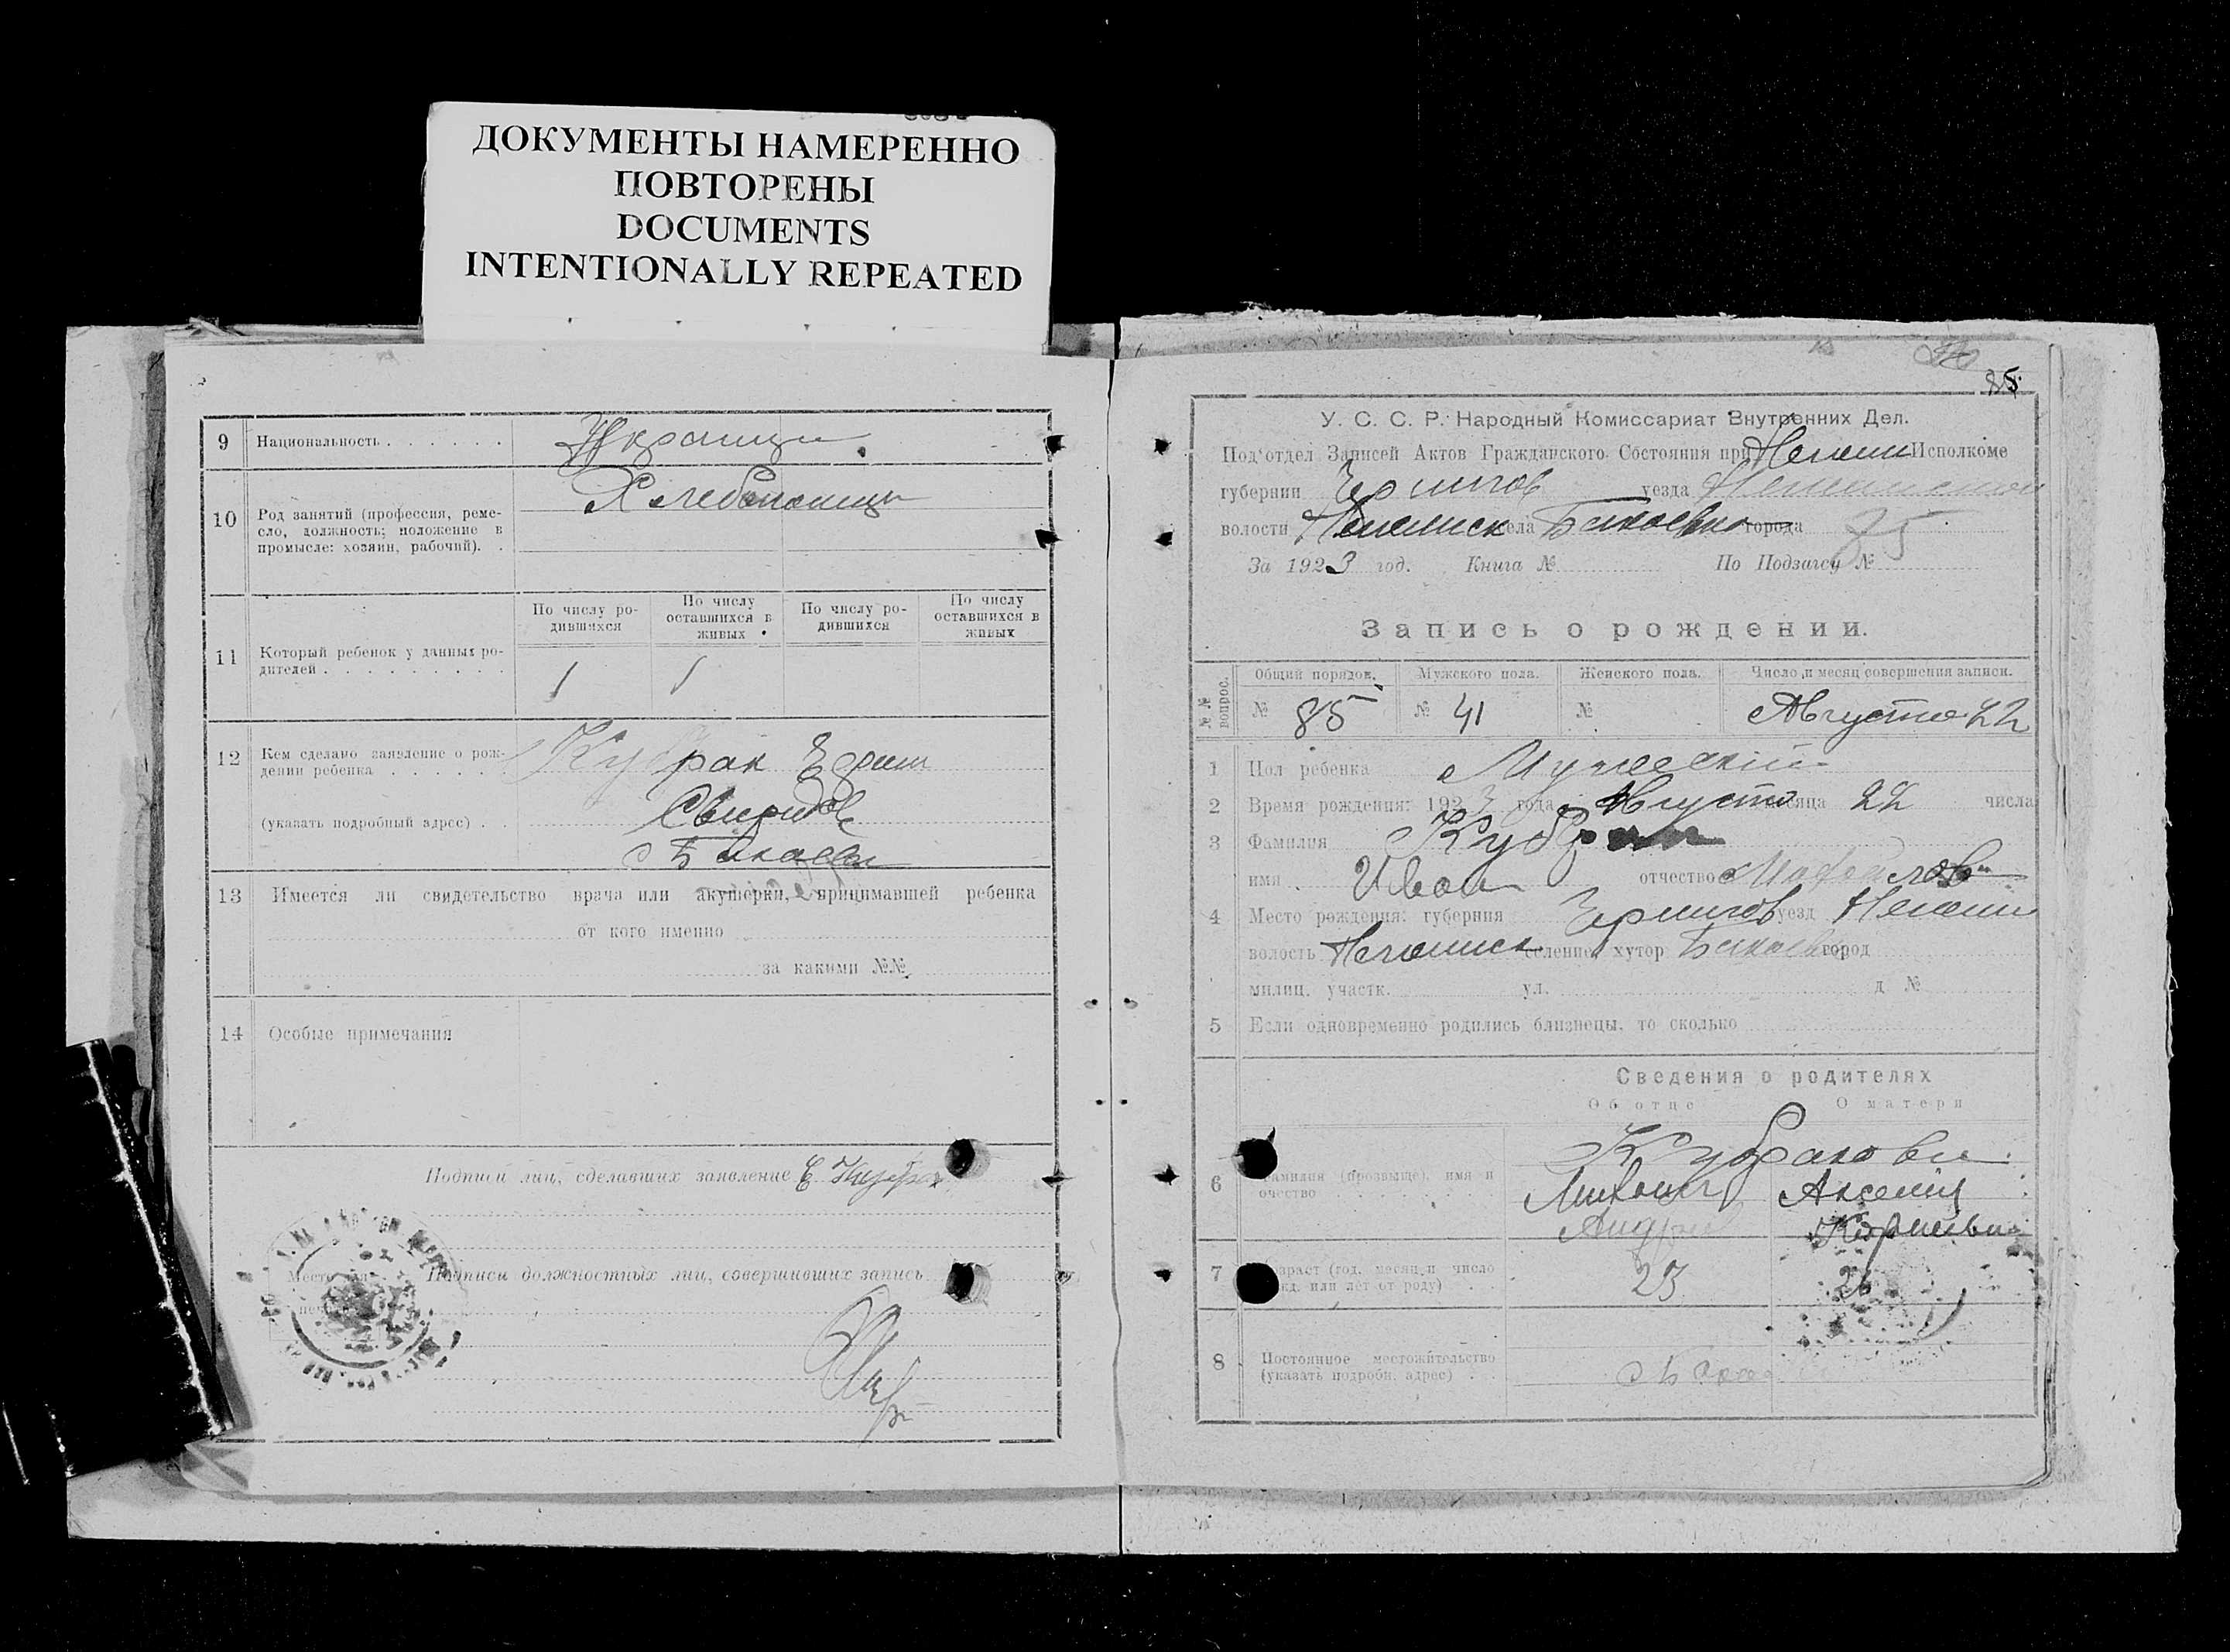 ДОКУМЕНТЫ НАМЕРЕННО
ПОВТОРЕНЫ
DOCUMENTS
INTENTIONALLY REPEATED
9 Национальность . . . . . . Украинци
10 Род занятий (профессия, реме-
сло, должность; положение в
промысле: хозяин, рабочий). .
Хлебопашцы
11 Который ребенок у данных ро-
дителей . . . . . . . . .
По числу ро-
дившихся
По числу
оставшихся в
живых
По числу ро-
дившихся
По числу
оставшихся в
живых
1 1
12 Кем сделано заявление о рож-
дении ребенка . . . . .
Кубрак
(указать подробный адрес) . .
13 Имеется ли свидетельство врача или акушерки, принимавшей ребенка
от кого именно
за какими №№
14 Особые примечания
Подписи лиц, сделавших заявление Е Кубрак
Место
печ
Подписи должностных лиц, совершивших запись
85
У. С. С. Р. Народный Комиссариат Внутренних Дел.
Под'отдел Записей Актов Гражданского Состояния при Исполкоме
губернии Чернигов уезда
волости села города 85
За 1923 год. Книга № По Подзагсу №
Запись о рождении.
№№ вопрос. Общий порядок. Мужского пола. Женского пола. Число и месяц совершения записи.
№ 85 № 41 № Августа 22
1 Пол ребенка Мужеский
2 Время рождения: 1923 года Августа месяца 22 числа
3 Фамилия Кубрак
имя Иван отчество
4 Место рождения: губерния Чернигов уезд
волость селение хутор город
милиц. участк. ул. д №
5 Если одновременно родились близнецы, то сколько
Сведения о родителях
Об отце О матери
6 Фамилия (прозвище), имя и
отчество
Кубракови
Михаил Аксения
Андреев Корнеевна
7 Возраст (год, месяц и число
рожд. или лет от роду) . .
23 26
8 Постоянное местожительство
(указать подробн. адрес) . . .